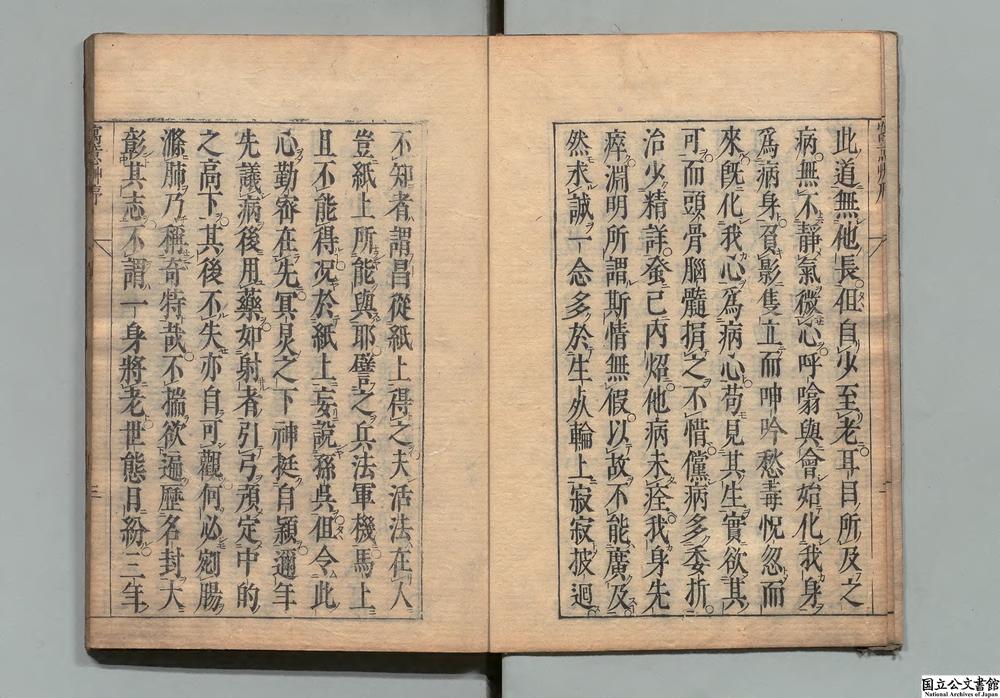 此道無他長但自少至老耳目所及之
病無不靜氣微心呼噏與會始化我身
爲病身負影隻立而呻吟愁毒怳忽而
來旣化我心爲病心苟見其生實欲其
可而頭骨腦髓捐之不惜儻病多委折
治少精詳蚤已內炤他病未痊我身先
瘁淵明所謂斯情無假以故不能廣及
然求誠一念多於生死輪上寂寂披𢌞
不知者謂昌從紙上得之夫活法在人
豈紙上所能與耶譬之兵法軍機馬上
且不能得况於紙上妄說孫吳但令此
心勤密在先冥炅之下神挺自頴邇年
先議病後用藥如射者引弓預定中的
之高下其後不失亦自可觀何必剜腸
滌肺乃稱奇特哉不揣欲遍歷名封大
彰其志不謂一身將老世態日紛三年
国立公文書館
National Archives of Japan